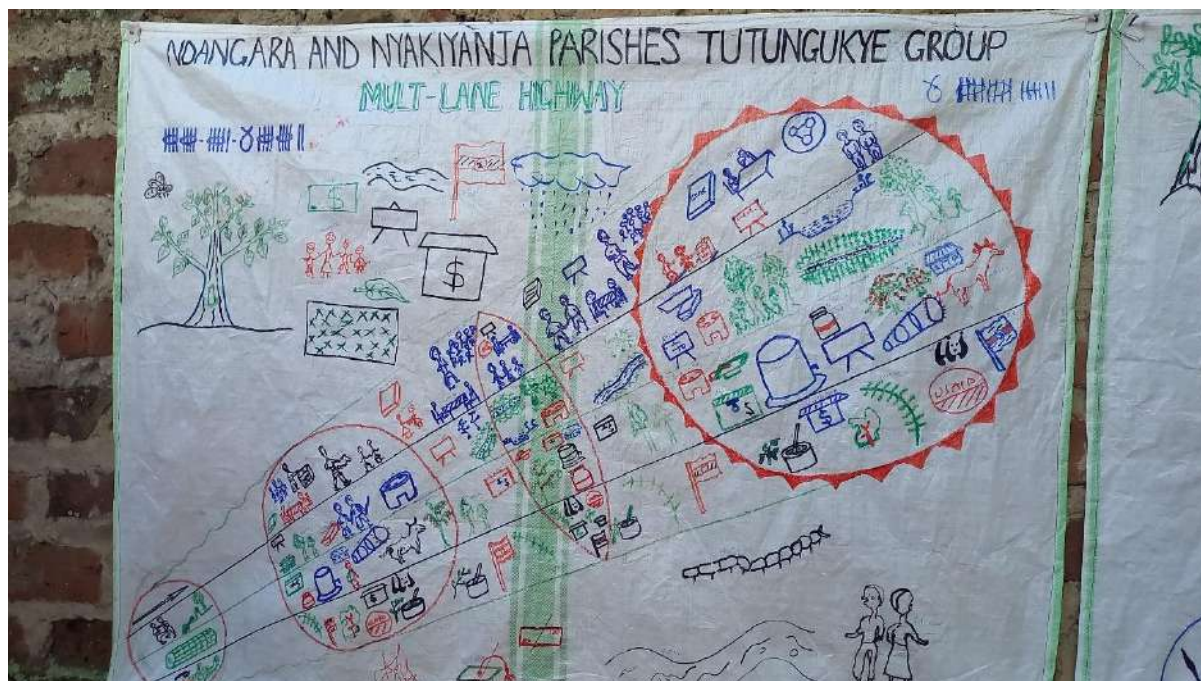 NDANGARA AND NYAKIYANJA PARISHES TUTUNGUKYE GROUP
MULT-LANE HIGHWAY
$
$
$
USAID